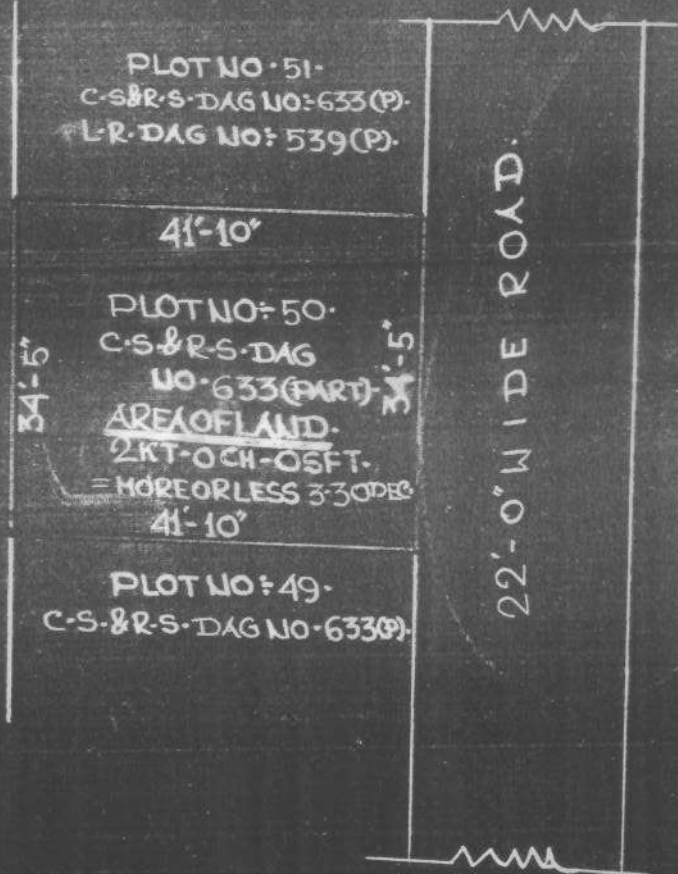 PLOT NO·51·
C·S&R·S·DAG NO:-633(P)·
L·R·DAG NO:- 539(P)·
41'-10"
PLOT NO:-50·
C·S·&R·S·DAG
NO·633(PART)·
34'-5"
34'-5"
AREA OF LAND·
2KT-0CH-0SFT·
= MORE OR LESS 3·30DEC
41'-10"
PLOT NO:-49·
C·S·&R·S·DAG NO·633(P)·
22'-0" WIDE ROAD.